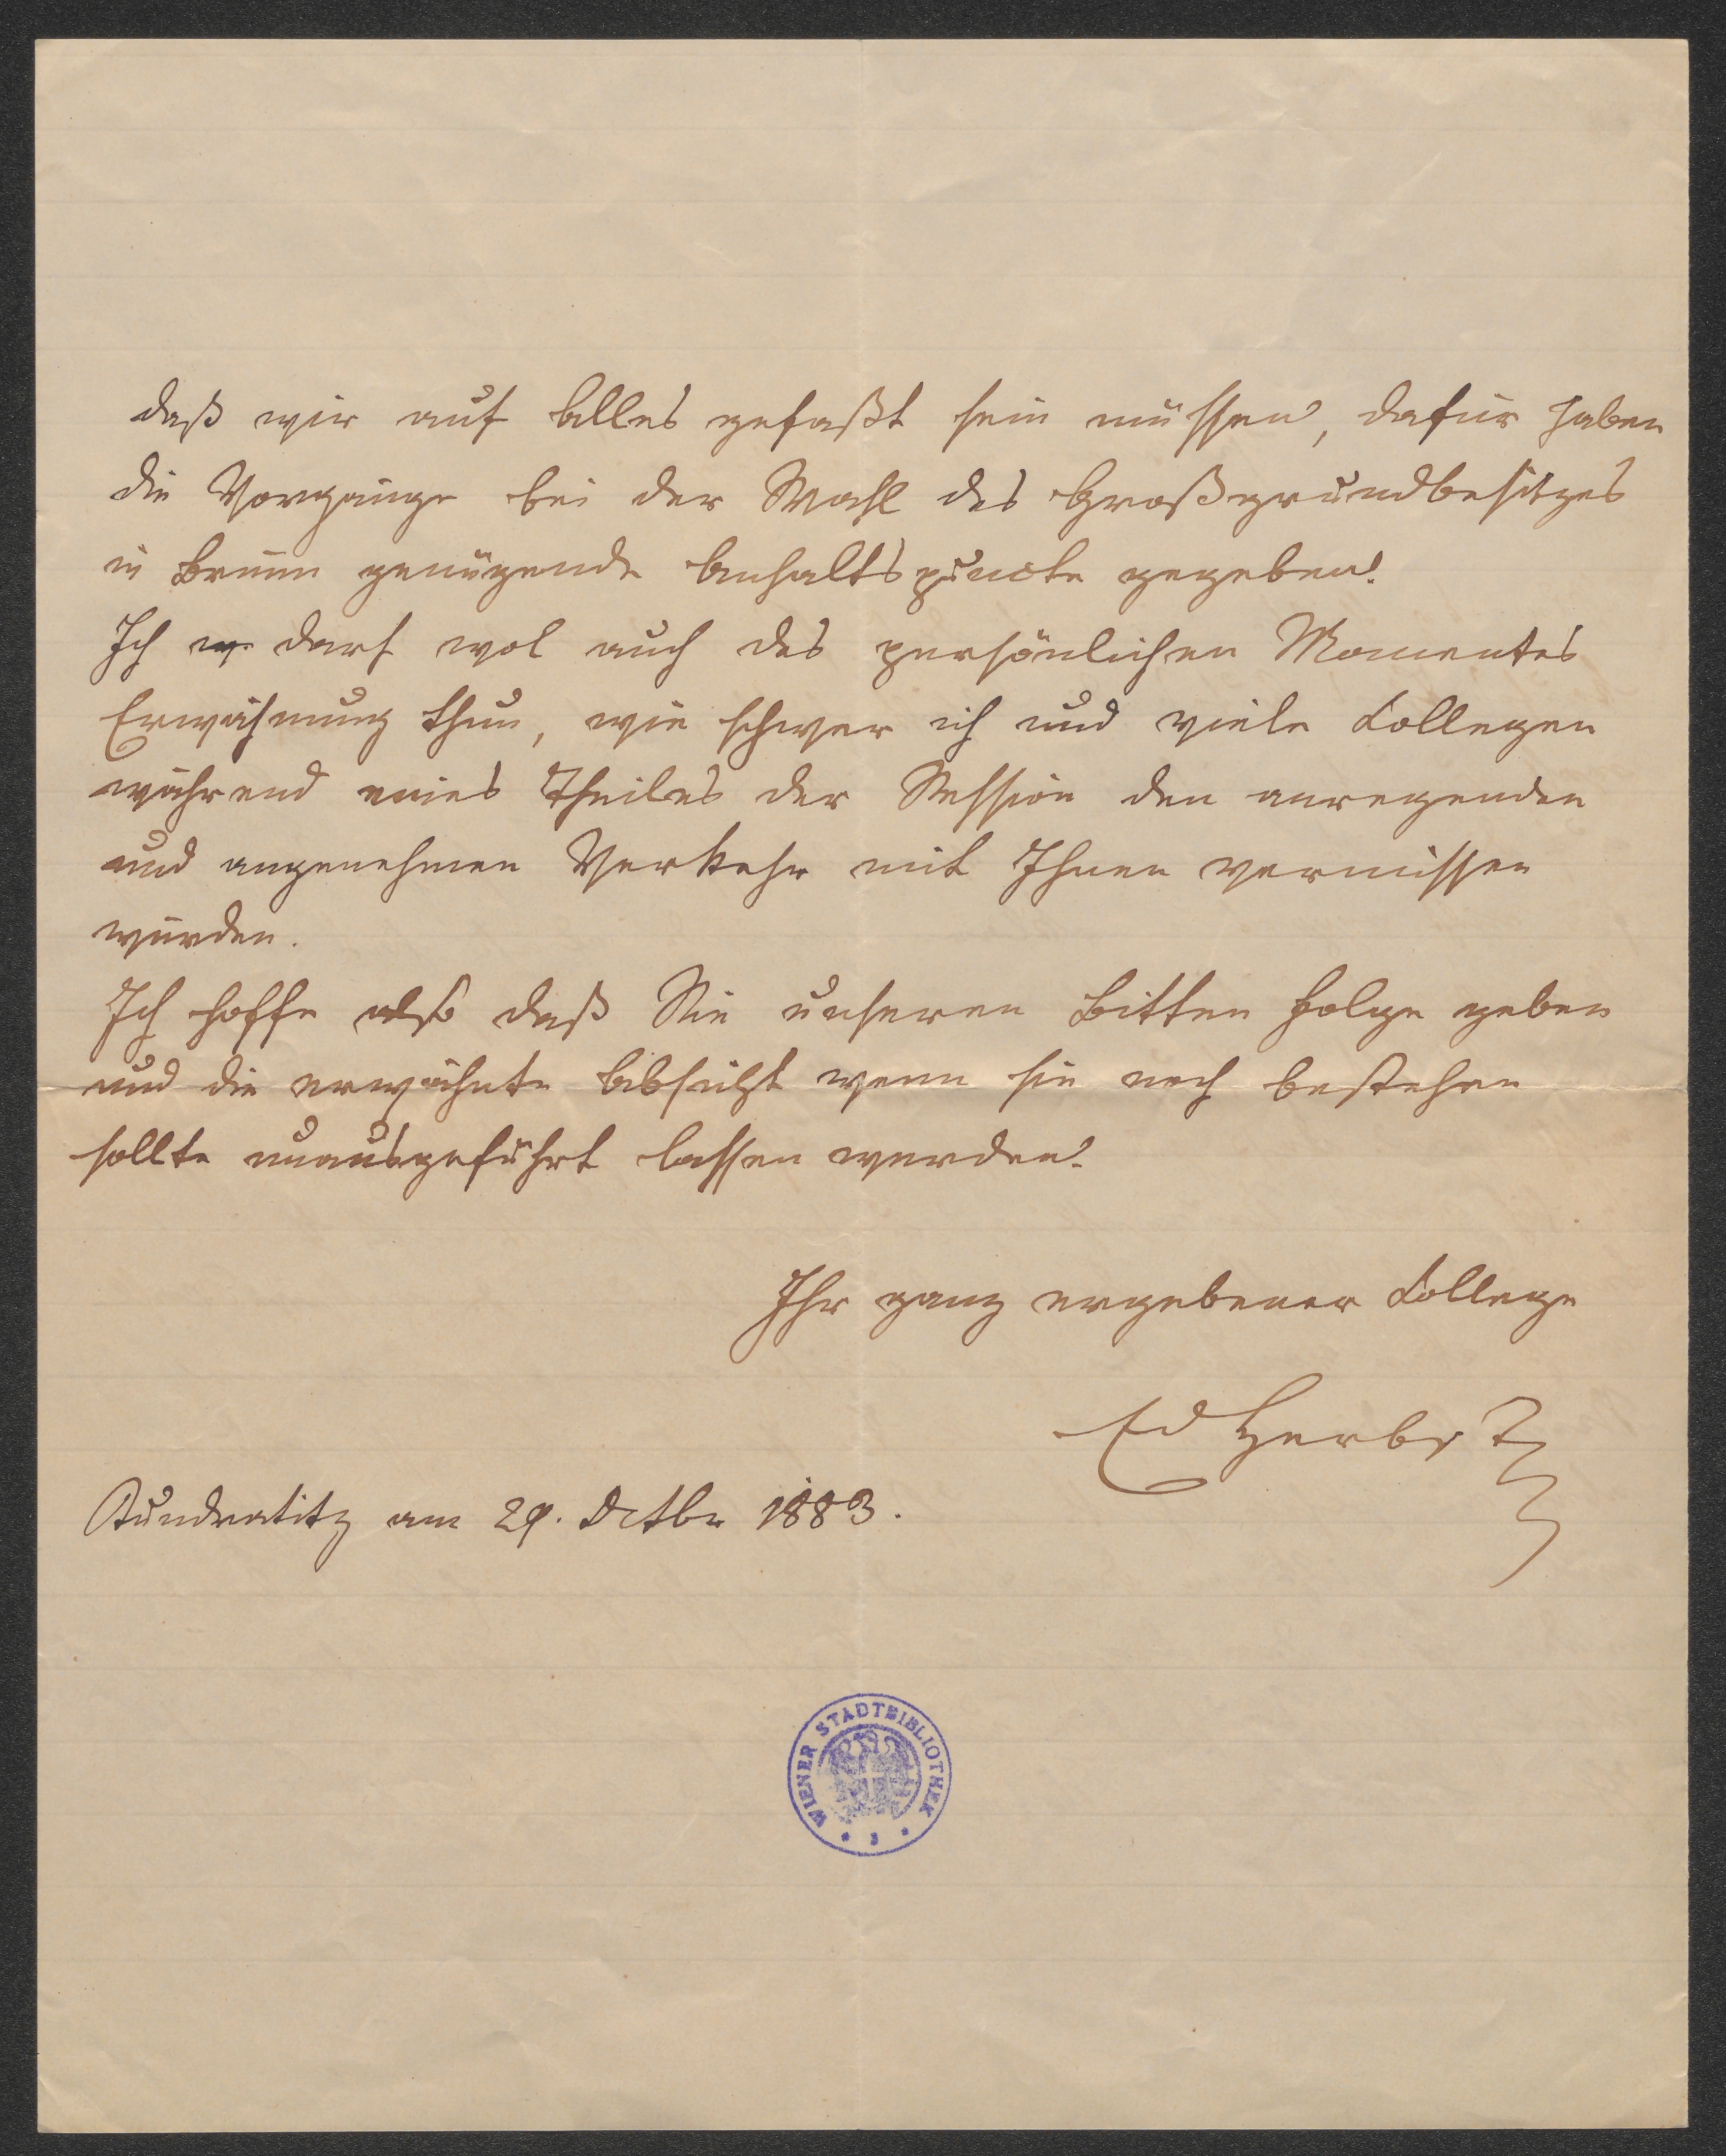 daß wir auf Alles gefaßt sein müssen, dafür haben
die Vorgänge bei der Wahl des Großgrundbesitzes
in Brünn genügende Anhaltspuncte gegeben.
Ich darf wol auch des persönlichen Momentes
Erwähnung thun, wie schwer ich und viele Collegen
während eines Theiles der Session den anregenden
und angenehmen Verkehr mit Ihnen vermissen
würden.
Ich hoffe also daß Sie unseren Bitten Folge geben
und die erwähnte Absicht wenn sie noch bestehen
sollte unausgeführt lassen werden.
Ihr ganz ergebener College
Ed Herbst
Kundratitz am 29. Octbr 1883.
WIENER STADTBIBLIOTHEK